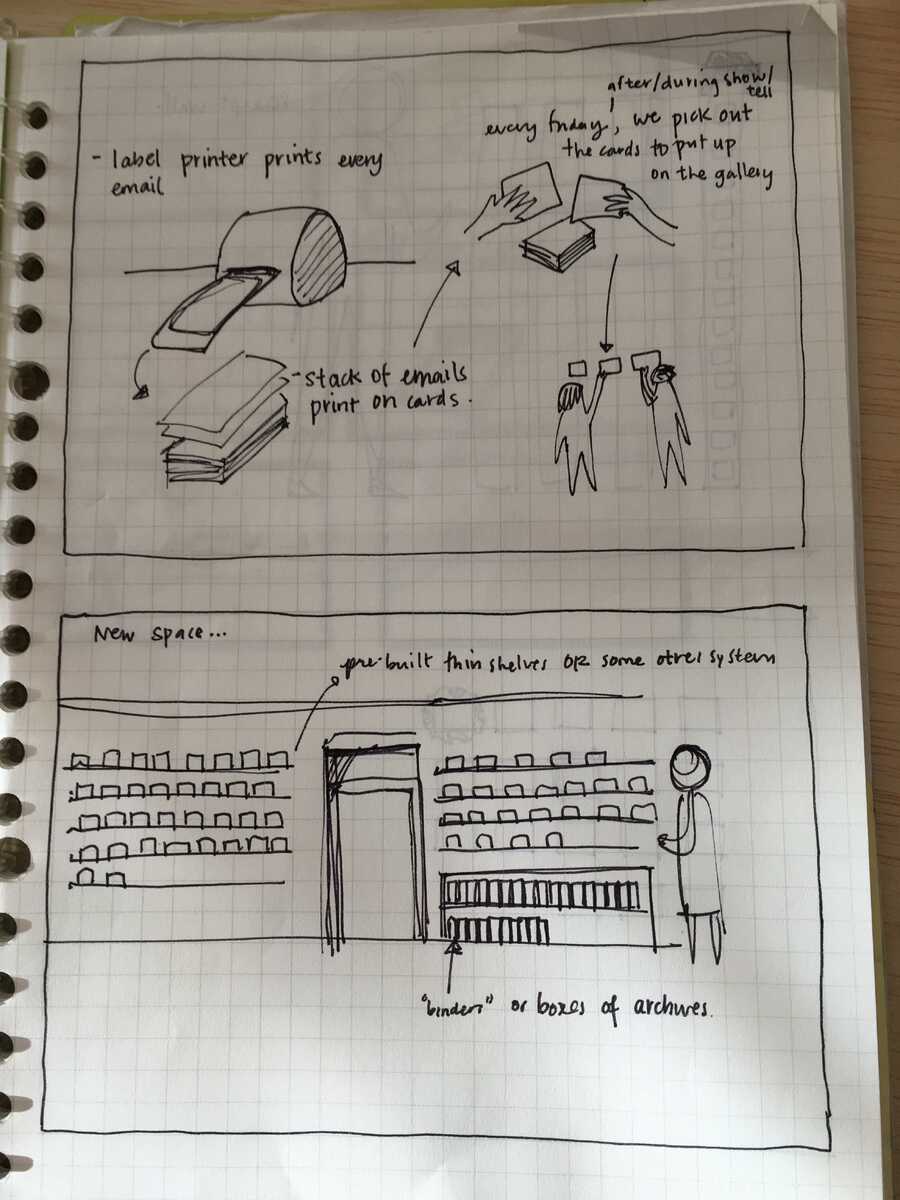 - label printer prints every
email
after/during show/
tell
every friday, we pick out
the cards to put up
on the gallery
- stack of emails
print on cards.
New space...
pre-built thin shelves OR some other system
"binders" or boxes of archives.